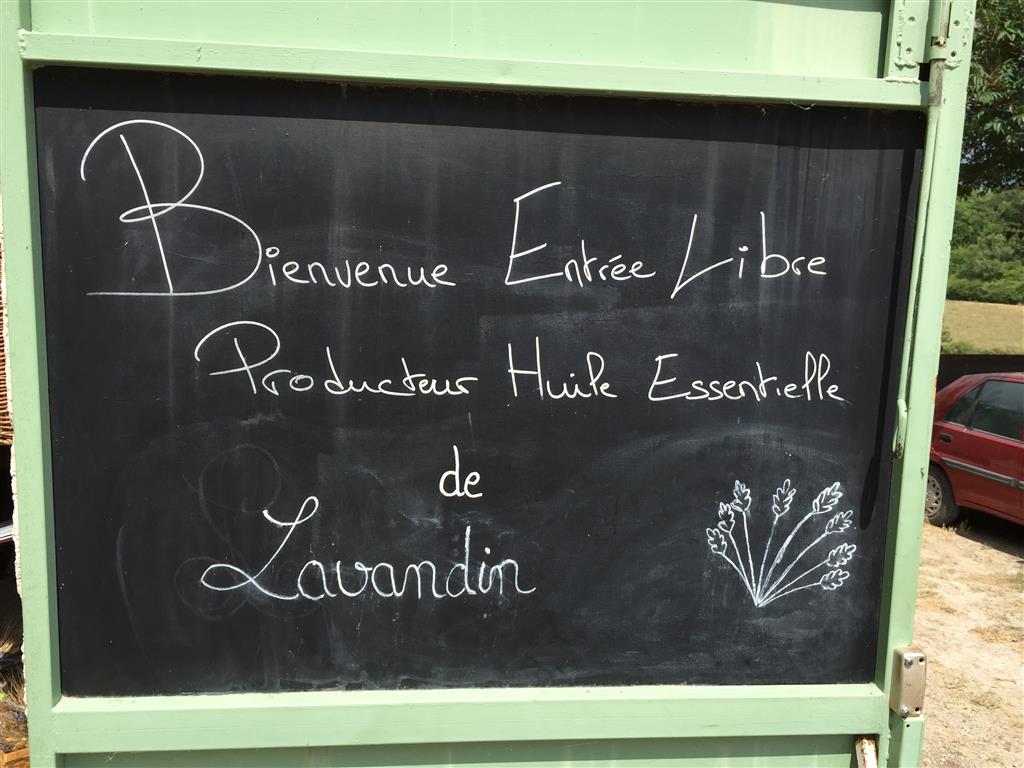 Bienvenue Entrée Libre
Producteur Huile Essentielle
de
Lavandin